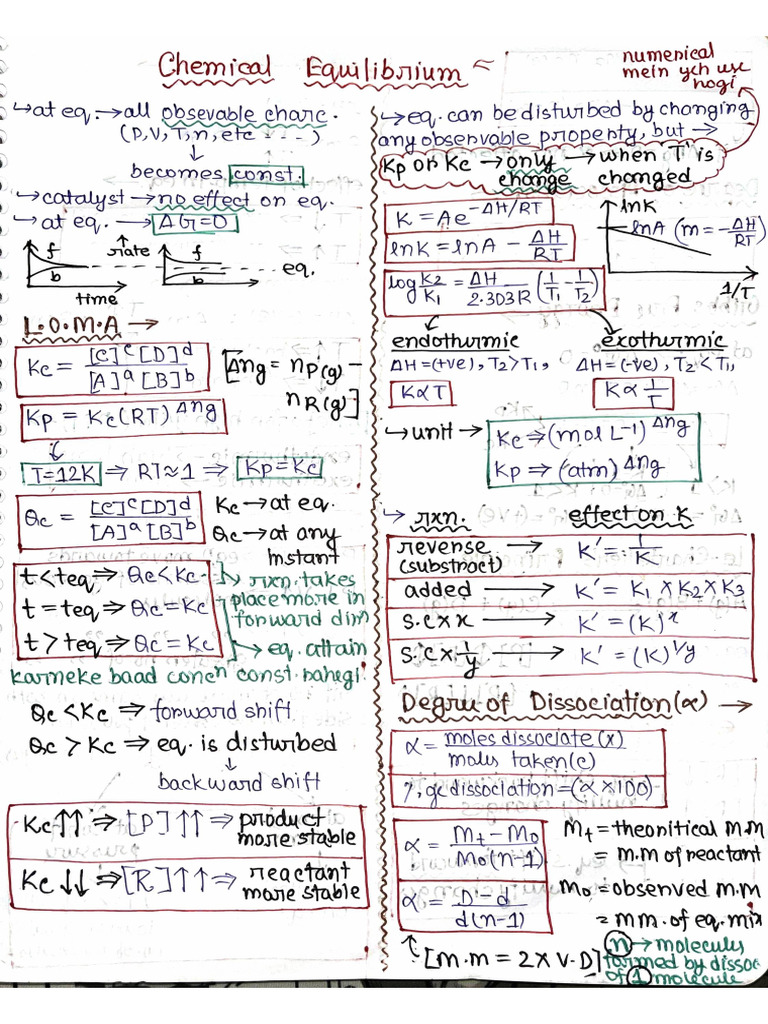 Chemical Equilibrium
numerical
mein yeh use
hogi
↳at eq.→all obsevable charc.
(P,V,T,n,etc ----)
↓
becomes const.
↳catalyst→no effect on eq.
↳at eq. → ΔG=0
rate
f
b
f
b
eq.
time
L.O.M.A →
Kc = [C]^c [D]^d / [A]^a [B]^b
[Δng = nP(g) - nR(g)]
Kp = Kc (RT)^Δng
T=12K ⇒ RT≈1 ⇒ Kp=Kc
Qc = [C]^c [D]^d / [A]^a [B]^b
Kc→at eq.
Qc→at any
instant
t<teq ⇒ Qc<Kc
t=teq ⇒ Qc=Kc
t>teq ⇒ Qc=Kc
↳ rxn. takes
place more in
forward dirn
→ eq. attain
karneke baad concn const. rahegi
Qc<Kc ⇒ forward shift
Qc>Kc ⇒ eq. is disturbed
↓
backward shift
Kc↑↑ ⇒ [P]↑↑ ⇒ product
more stable
Kc↓↓ ⇒ [R]↑↑ ⇒ reactant
more stable
↳eq. can be disturbed by changing
any observable property, but →
Kp or Kc → only → when 'T' is
change changed
K = Ae^-ΔH/RT
lnK = lnA - ΔH/RT
log K2/K1 = ΔH/2.303R (1/T1 - 1/T2)
lnK
lnA (m = -ΔH/RT)
1/T
endothurmic
ΔH=(+ve), T2>T1,
K∝T
exothurmic
ΔH=(-ve), T2<T1,
K∝1/T
↳unit→ Kc⇒(mol L-1)^Δng
Kp⇒(atm)^Δng
↳ rxn. effect on K
reverse → K' = 1/K
(substract)
added → K' = K1 × K2 × K3
S.C × x → K' = (K)^x
S.C × 1/y → K' = (K)^1/y
Degru of Dissociation(α) →
α = moles dissociate (x) / mols taken(c)
%ge dissociation = (α×100)
α = Mt - Mo / Mo(n-1)
α = D - d / d(n-1)
Mt = theoritical m.m
= m.m of reactant
Mo = observed m.m
= mm. of eq. mix
↑[m.m = 2×V.D]
n → molecules
formed by dissoc
of 1 molecule